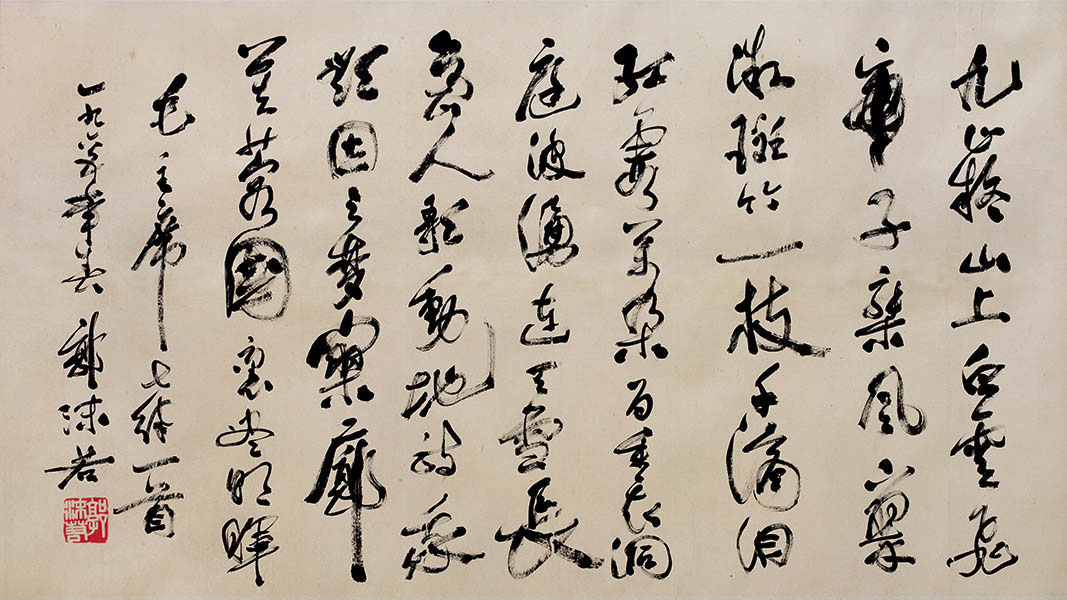 九嶷山上白雲飛
帝子乘風下翠
微斑竹一枝千滴泪
紅霞萬朵百重衣洞
庭波涌連天雪長
島人歌動地詩我
欲因之夢寥廓
芙蓉國裏盡朝暉
毛主席七律一首
一九六 郭沫若
郭沫若